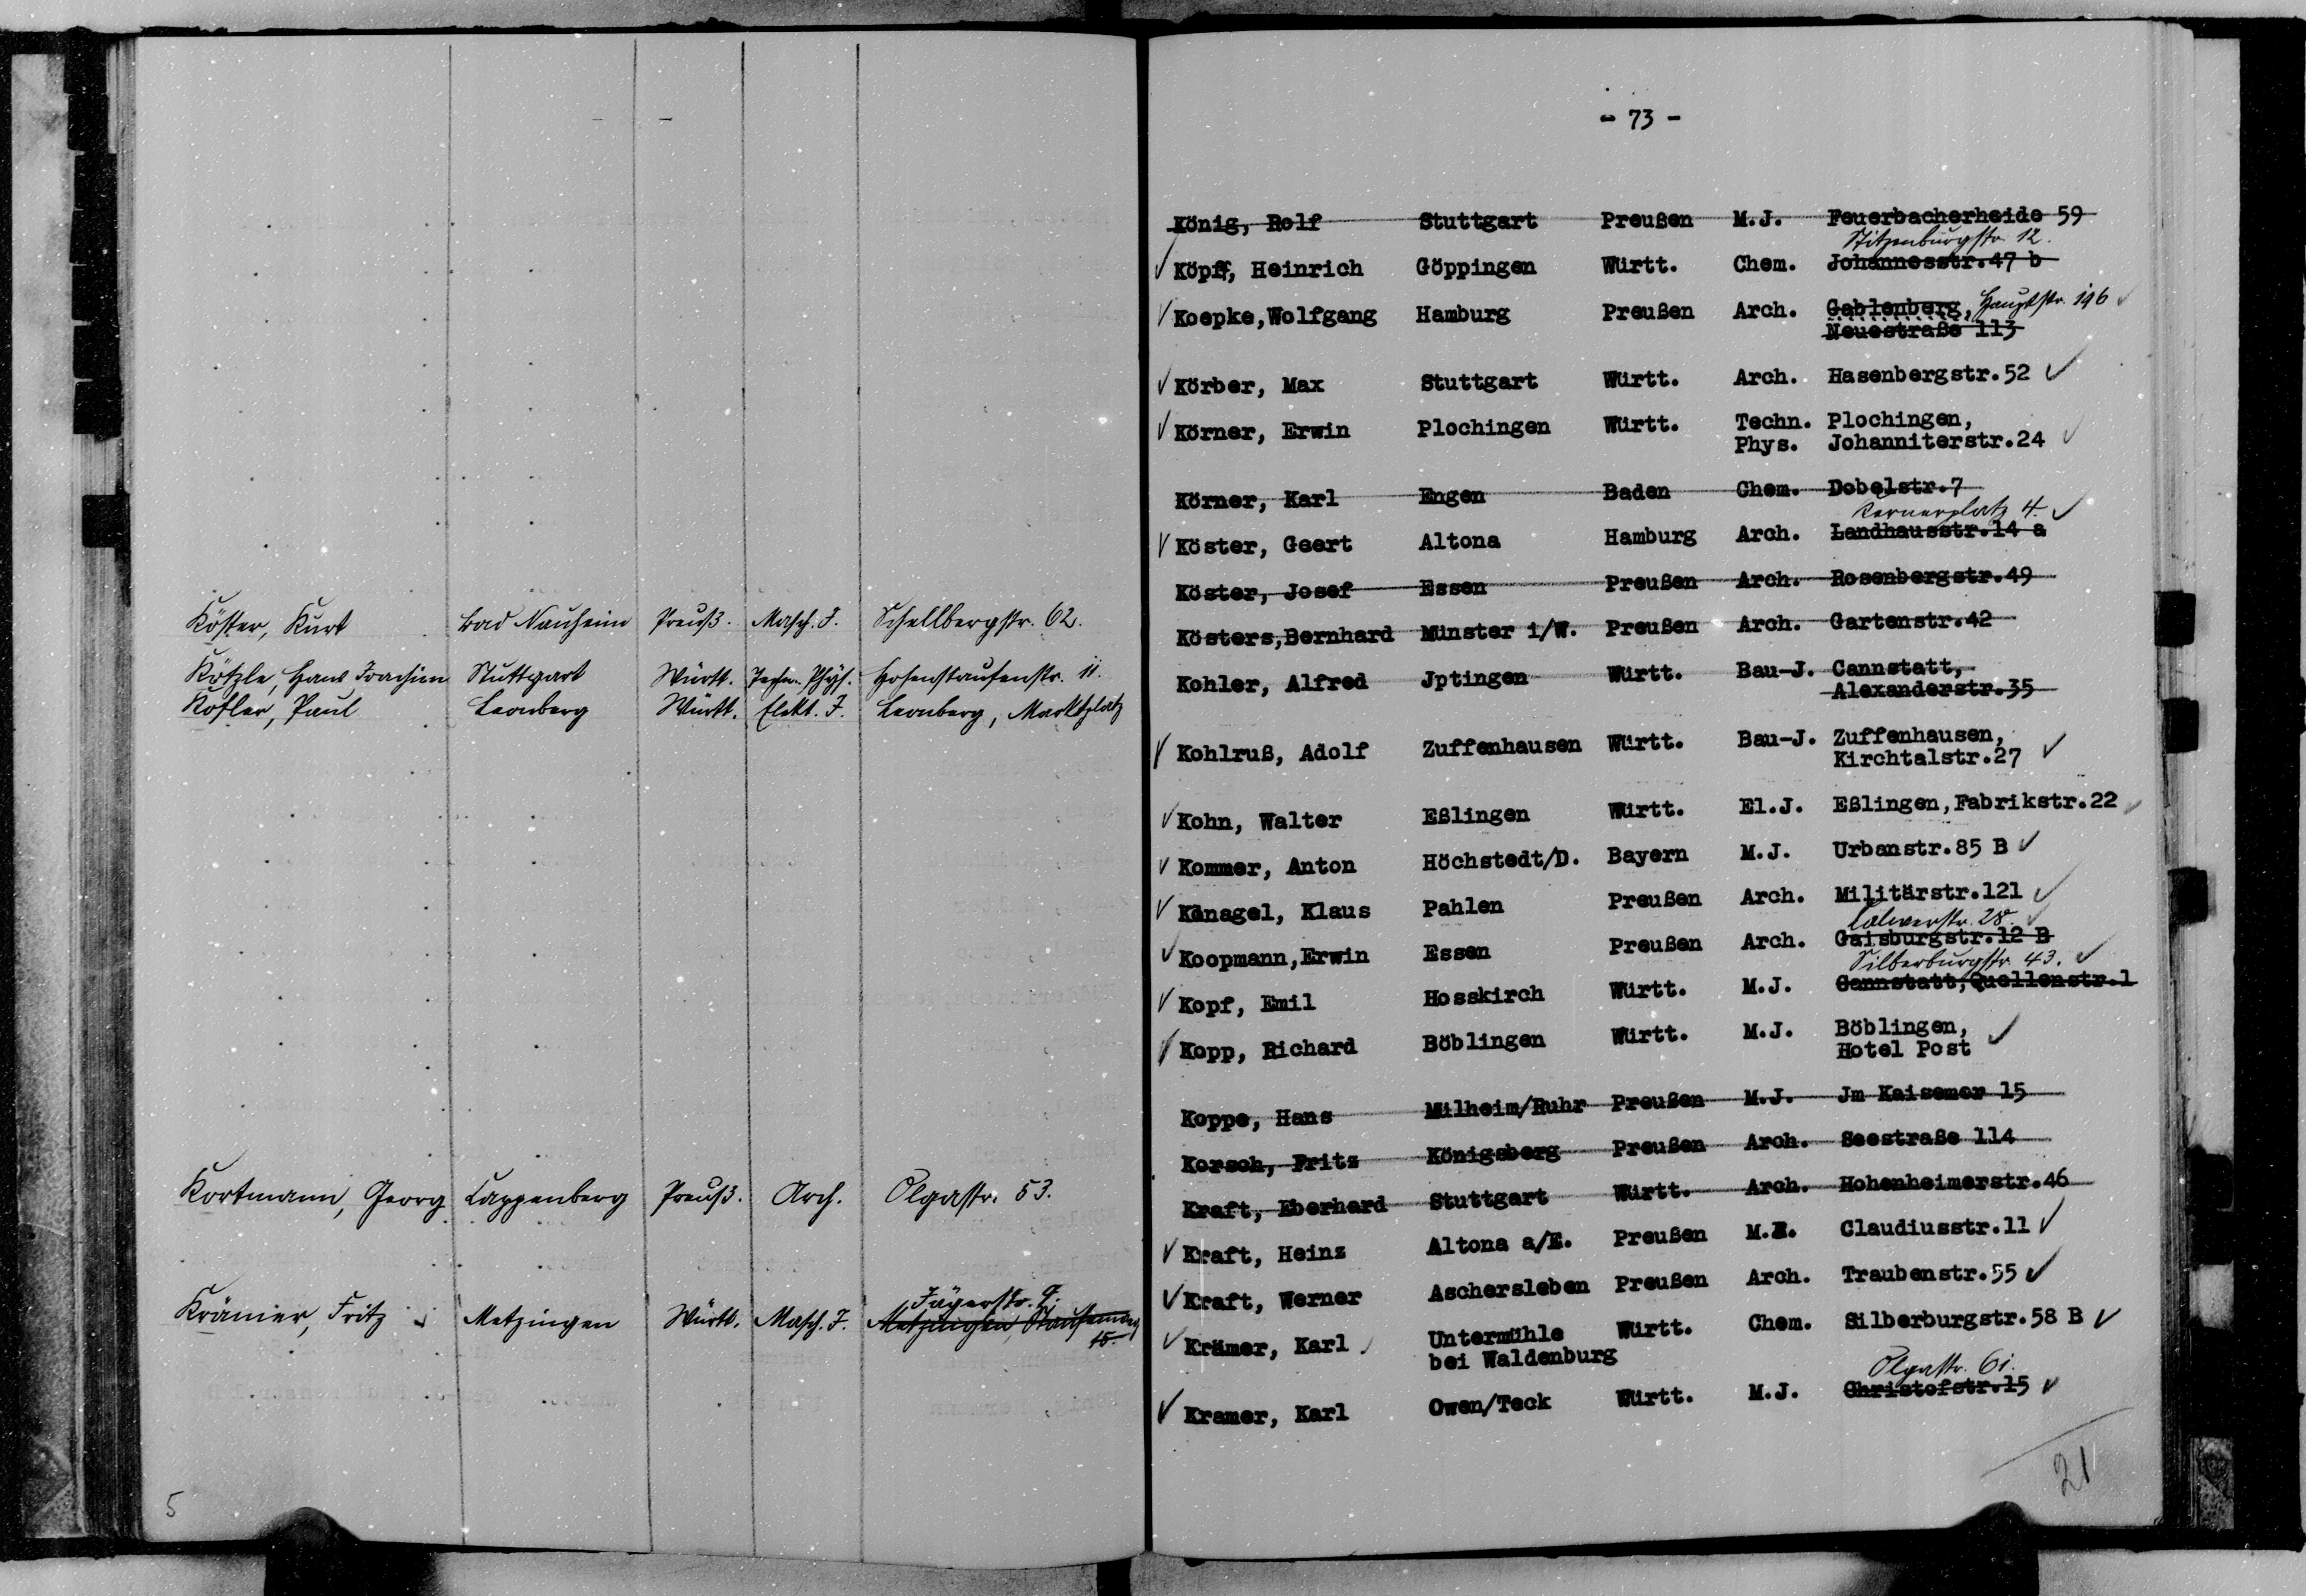 Köster, Kurt Bad Nauheim Preuß. Masch. I. Schellbergstr. 62.
Kötzle, Hans Joachim Stuttgart Württ. Techn. Phys. Hohenstaufenstr. 11.
Kofler, Paul Leonberg Württ. Elekt. I. Leonberg, Marktplatz
Kortmann, Georg Cappenberg Preuß. Arch. Olgastr. 53.
Jägerstr. 9.
Krämer, Fritz Metzingen Württ. Masch. I. Metzingen,
45.
5
- 73 -
König, Rolf Stuttgart Preußen M.J. Feuerbacherheide 59
Stitzenburgstr. 12.
Köpff, Heinrich Göppingen Württ. Chem. Johannesstr.47 b
Koepke,Wolfgang Hamburg Preußen Arch. Gablenberg, Hauptstr. 196
Neuestraße 113
Körber, Max Stuttgart Württ. Arch. Hasenbergstr.52
Körner, Erwin Plochingen Württ. Techn. Plochingen,
Phys. Johanniterstr.24
Körner, Karl Engen Baden Chem. Dobelstr.7
Kernerplatz 4.
Köster, Geert Altona Hamburg Arch. Landhausstr.14 a
Köster, Josef Essen Preußen Arch. Rosenbergstr.49
Kösters,Bernhard Münster i/W. Preußen Arch. Gartenstr.42
Kohler, Alfred Jptingen Württ. Bau-J. Cannstatt,
Alexanderstr.35
Kohlruß, Adolf Zuffenhausen Württ. Bau-J. Zuffenhausen,
Kirchtalstr.27
Kohn, Walter Eßlingen Württ. El.J. Eßlingen,Fabrikstr.22
Kommer, Anton Höchstedt/D. Bayern M.J. Urbanstr.85 B
Klaus Pahlen Preußen Arch. Militärstr.121
Calwerstr. 28.
Koopmann,Erwin Essen Preußen Arch. Gaisburgstr.12 B
Silberburgstr. 43.
Kopf, Emil Hosskirch Württ. M.J. Cannstatt,Quellenstr.1
Kopp, Richard Böblingen Württ. M.J. Böblingen,
Hotel Post
Koppe, Hans Milheim/Ruhr Preußen M.J. Jm Kaisemer 15
Korsch, Fritz Königsberg Preußen Arch. Seestraße 114
Kraft, Eberhard Stuttgart Württ. Arch. Hohenheimerstr.46
Kraft, Heinz Altona a/E. Preußen Claudiusstr.11
Kraft, Werner Aschersleben Preußen Arch. Traubenstr.55
Krämer, Karl Untermühle Württ. Chem. Silberburgstr.58 B
bei Waldenburg
Olgastr. 61.
Kramer, Karl Owen/Teck Württ. M.J. Christofstr.15
21